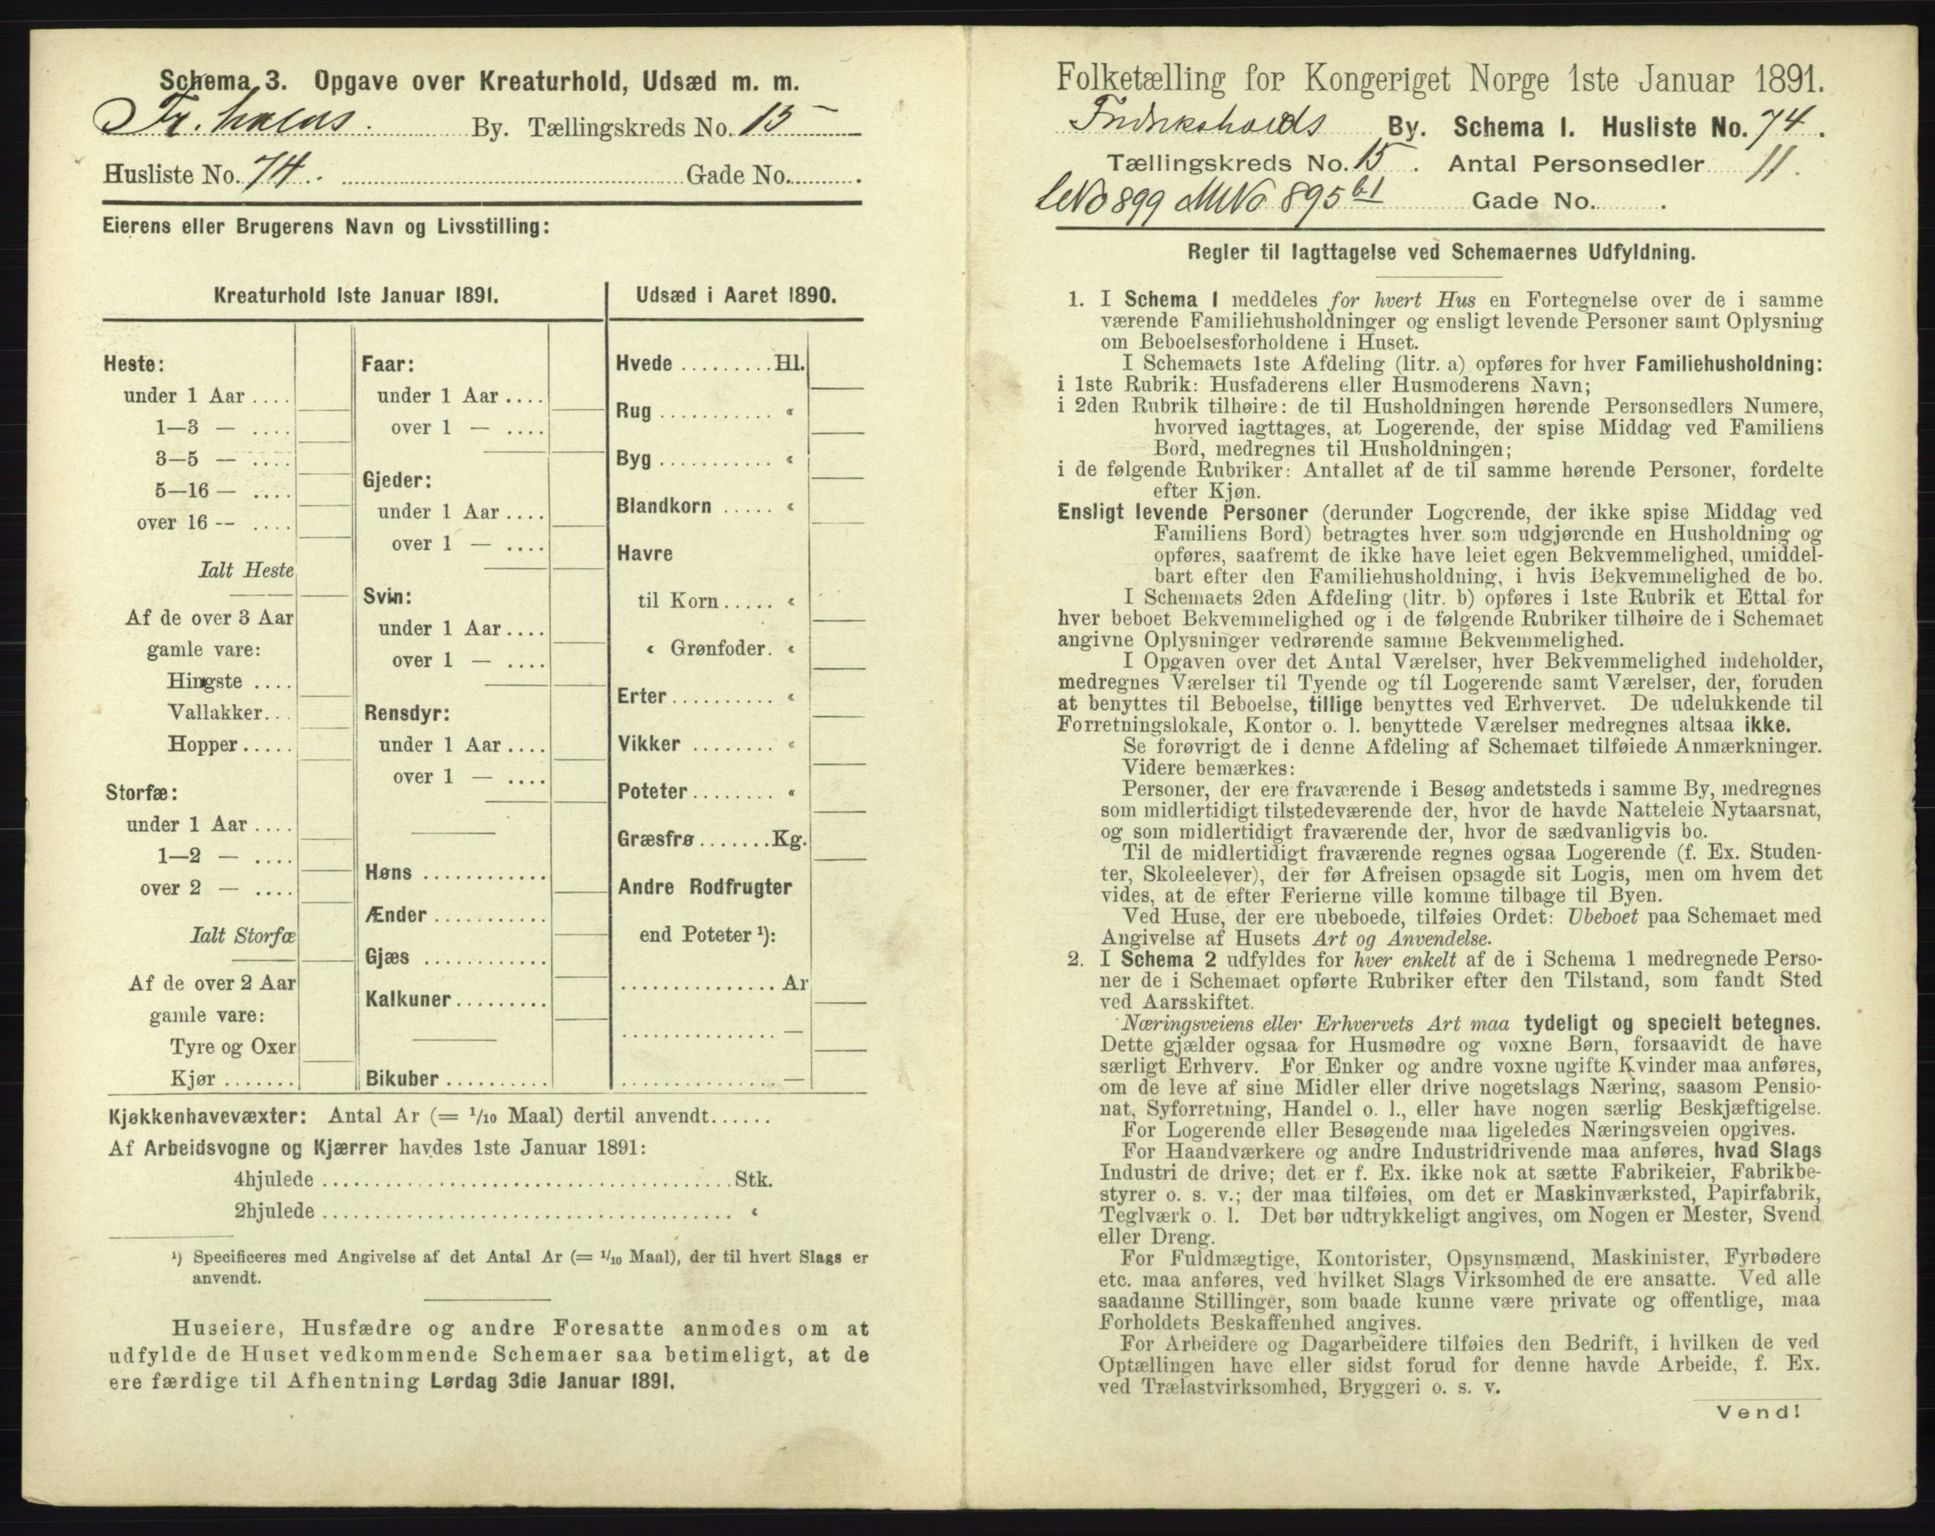 Schema 3. Opgave over Kreaturhold, Udsæd m. m.
Fr.halds. By. Tællingskreds No. 15
Husliste No. 74. Gade No. .
Eierens eller Brugerens Navn og Livsstilling:
Kreaturhold 1ste Januar 1891.
Heste:
under 1 Aar ....
1—3 — ....
3—5 — ....
5—16 — ....
over 16 -- ....
Ialt Heste
Af de over 3 Aar
gamle vare:
Hingste ....
Vallakker...
Hopper.....
Storfæ:
under 1 Aar ....
1—2 — ....
over 2 — ....
Ialt Storfæ
Af de over 2 Aar
gamle vare:
Tyre og Oxer
Kjør .......
Faar:
under 1 Aar ....
over 1 — ....
Gjeder:
under 1 Aar ....
over 1 — ....
Svin:
under 1 Aar ....
over 1 — ....
Rensdyr:
under 1 Aar ....
over 1 — ....
Høns ............
Ænder ...........
Gjæs ............
Kalkuner.........
Bikuber ..........
Udsæd i Aaret 1890.
Hvede .........Hl.
Rug ........... «
Byg ........... «
Blandkorn ..... «
Havre
til Korn..... «
« Grønfoder. «
Erter .......... «
Vikker ........ «
Poteter........ «
Græsfrø.......Kg.
Andre Rodfrugter
end Poteter ¹):
............... Ar
............... —
............... —
Kjøkkenhavevæxter: Antal Ar (= 1/10 Maal) dertil anvendt......
Af Arbeidsvogne og Kjærrer havdes 1ste Januar 1891:
4hjulede ....................................Stk.
2hjulede .................................... «
¹) Specificeres med Angivelse af det Antal Ar (= 1/10 Maal), der til hvert Slags er
anvendt.
Huseiere, Husfædre og andre Foresatte anmodes om at
udfylde de Huset vedkommende Schemaer saa betimeligt, at de
ere færdige til Afhentning Lørdag 3die Januar 1891.
Folketælling for Kongeriget Norge 1ste Januar 1891.
Fredrikshalds By. Schema 1. Husliste No. 74.
Tællingskreds No. 15. Antal Personsedler 11.
LNo 899 MNo 895 b1 Gade No. .
Regler til Iagttagelse ved Schemaernes Udfyldning.
1. I Schema 1 meddeles for hvert Hus en Fortegnelse over de i samme
værende Familiehusholdninger og ensligt levende Personer samt Oplysning
om Beboelsesforholdene i Huset.
I Schemaets 1ste Afdeling (litr. a) opføres for hver Familiehusholdning:
i 1ste Rubrik: Husfaderens eller Husmoderens Navn;
i 2den Rubrik tilhøire: de til Husholdningen hørende Personsedlers Numere,
hvorved iagttages, at Logerende, der spise Middag ved Familiens
Bord, medregnes til Husholdningen;
i de følgende Rubriker: Antallet af de til samme hørende Personer, fordelte
efter Kjøn.
Ensligt levende Personer (derunder Logerende, der ikke spise Middag ved
Familiens Bord) betragtes hver som udgjørende en Husholdning og
opføres, saafremt de ikke have leiet egen Bekvemmelighed, umiddel-
bart efter den Familiehusholdning, i hvis Bekvemmelighed de bo.
I Schemaets 2den Afdeling (litr. b) opføres i 1ste Rubrik et Ettal for
hver beboet Bekvemmelighed og i de følgende Rubriker tilhøire de i Schemaet
angivne Oplysninger vedrørende samme Bekvemmelighed.
I Opgaven over det Antal Værelser, hver Bekvemmelighed indeholder,
medregnes Værelser til Tyende og til Logerende samt Værelser, der, foruden
at benyttes til Beboelse, tillige benyttes ved Erhvervet. De udelukkende til
Forretningslokale, Kontor o. l. benyttede Værelser medregnes altsaa ikke.
Se forøvrigt de i denne Afdeling af Schemaet tilføiede Anmærkninger.
Videre bemærkes:
Personer, der ere fraværende i Besøg andetsteds i samme By, medregnes
som midlertidigt tilstedeværende der, hvor de havde Natteleie Nytaarsnat,
og som midlertidigt fraværende der, hvor de sædvanligvis bo.
Til de midlertidigt fraværende regnes ogsaa Logerende (f. Ex. Studen-
ter, Skoleelever), der før Afreisen opsagde sit Logis, men om hvem det
vides, at de efter Ferierne ville komme tilbage til Byen.
Ved Huse, der ere ubeboede, tilføies Ordet: Ubeboet paa Schemaet med
Angivelse af Husets Art og Anvendelse.
2. I Schema 2 udfyldes for hver enkelt af de i Schema 1 medregnede Perso-
ner de i Schemaet opførte Rubriker efter den Tilstand, som fandt Sted
ved Aarsskiftet.
Næringsveiens eller Erhvervets Art maa tydeligt og specielt betegnes.
Dette gjælder ogsaa for Husmødre og voxne Børn, forsaavidt de have
særligt Erhverv. For Enker og andre voxne ugifte Kvinder maa anføres,
om de leve af sine Midler eller drive nogetslags Næring, saasom Pensio-
nat, Syforretning, Handel o. l., eller have nogen særlig Beskjæftigelse.
For Logerende eller Besøgende maa ligeledes Næringsveien opgives.
For Haandværkere og andre Industridrivende maa anføres, hvad Slags
Industri de drive; det er f. Ex. ikke nok at sætte Fabrikeier, Fabrikbe-
styrer o. s. v.; der maa tilføies, om det er Maskinværksted, Papirfabrik,
Teglværk o. l. Det bør udtrykkeligt angives, om Nogen er Mester, Svend
eller Dreng.
For Fuldmægtige, Kontorister, Opsynsmænd, Maskinister, Fyrbødere
etc. maa anføres, ved hvilket Slags Virksomhed de ere ansatte. Ved alle
saadanne Stillinger, som baade kunne være private og offentlige, maa
Forholdets Beskaffenhed angives.
For Arbeidere og Dagarbeidere tilføies den Bedrift, i hvilken de ved
Optællingen have eller sidst forud for denne havde Arbeide, f. Ex.
ved Trælastvirksomhed, Bryggeri o. s. v.
Vend!